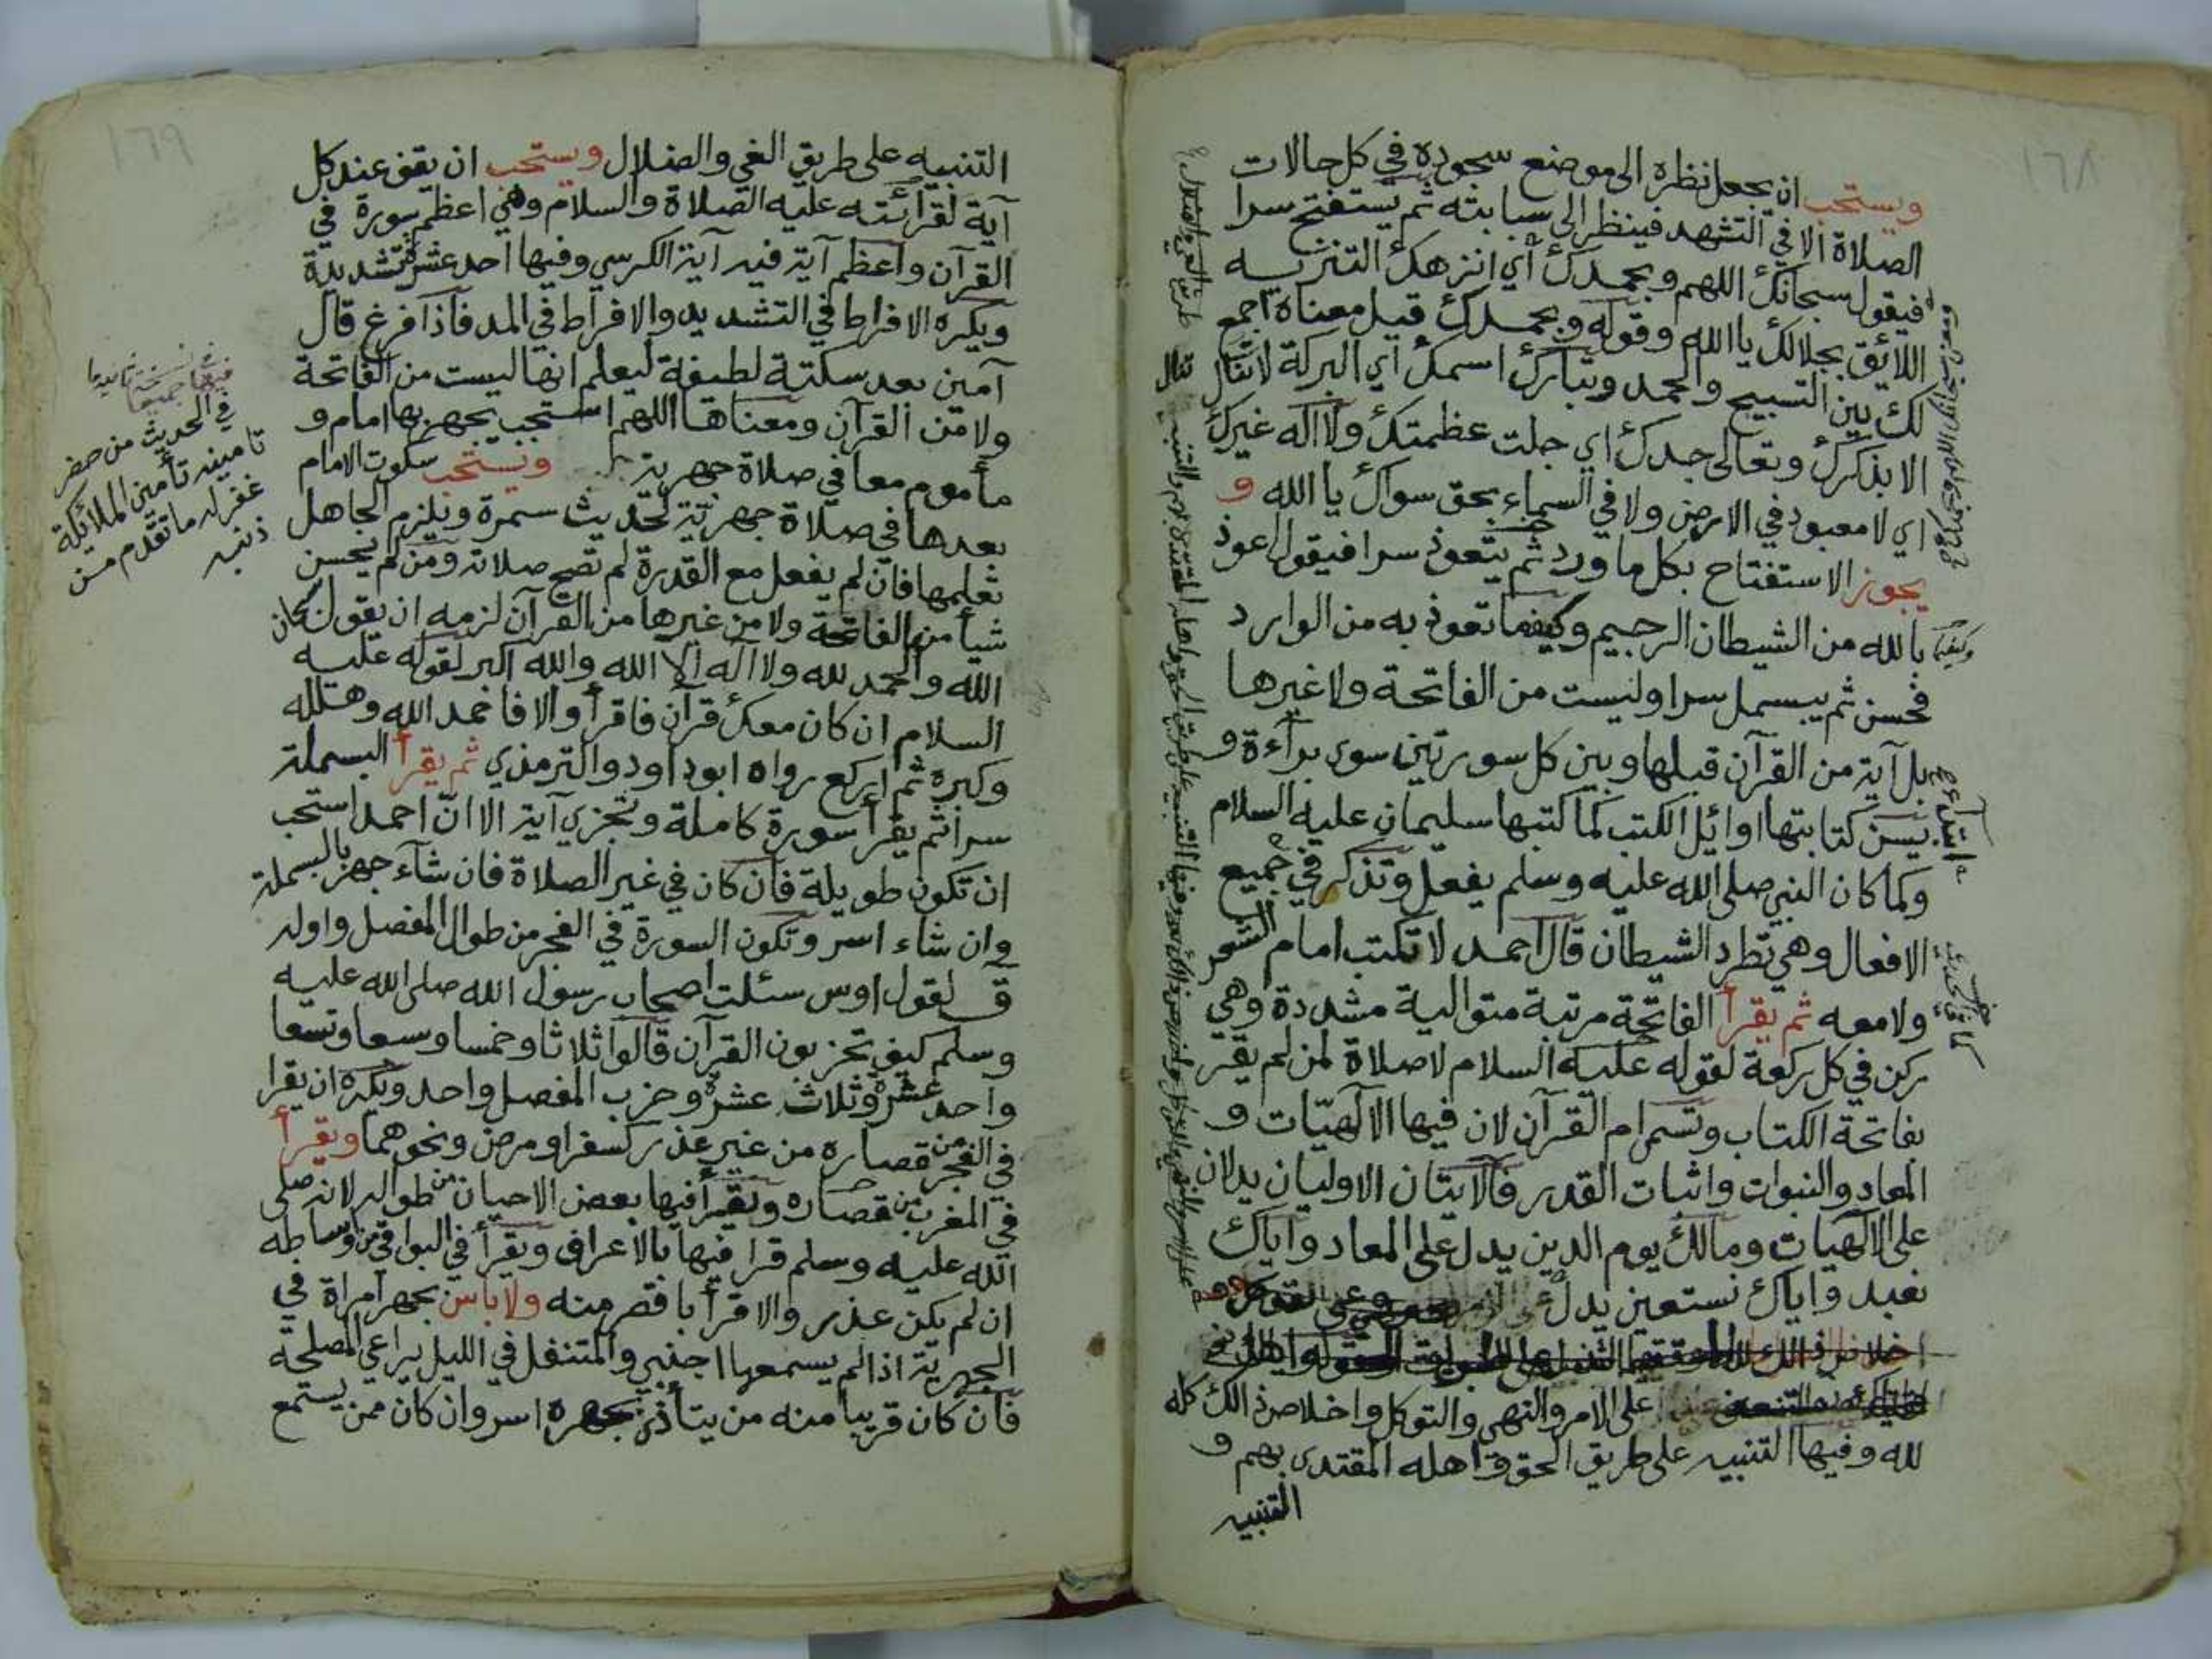 ١٦٨
ويستحب ان يجعل نظره الى موضع سجوده في كل حالات
الصلاة الا في التشهد فينظر الى سبابته ثم يستفتح سرا
فيقول سبحانك اللهم وبحمدك أي انزهك التنزيه
اللائق بجلالك يا الله وقوله وبحمدك قيل معناه اجمع
لك بين التسبيح والحمد وتبارك اسمك أي البركة لا تنال
الا بذكرك وتعالى جدك اي جلت عظمتك ولا اله غيرك
اي لا معبود في الارض ولا في السماء بحق سواك يا الله و
يجوز الاستفتاح بكل ما ورد ثم يتعوذ سرا فيقول اعوذ
بالله من الشيطان الرجيم وكيفما تعوذ به من الوارد
فحسن ثم يبسمل سرا وليست من الفاتحة ولا غيرها
بل آية من القرآن قبلها وبين كل سورتين سوى براءة و
يسن كتابتها اوائل الكتب كما كتبها سليمان عليه السلام
وكما كان النبي صلى الله عليه وسلم يفعل وتذكر في جميع
الافعال وهي تطرد الشيطان قال احمد لا تكتب امام الشعر
ولا معه ثم يقرأ الفاتحة مرتبة متوالية مشددة وهي
ركن في كل ركعة لقوله عليه السلام لا صلاة لمن لم يقر
بفاتحة الكتاب وتسم ام القرآن لان فيها الالهيات و
المعاد والنبوات واثبات القدر فالآيتان الاوليان يدلان
على الالهيات ومالك يوم الدين يدل على المعاد واياك
نعبد واياك نستعين يدل
على الامر والنهي والتوكل واخلاص ذالك كله
لله وفيها التنبيه على طريق الحق واهله المقتدى بهم و
التنبيه
وكيفما
ابتداء
١٦٩
التنبيه على طريق الغي والضلال ويستحب ان يقف عند كل
آية لقرأئته عليه الصلاة والسلام وهي اعظم سورة في
القرآن واعظم آية فيه آية الكرسي وفيها احد عشرة تشديدة
ويكره الافراط في التشديد والافراط في المد فاذا فرغ قال
آمين بعد سكتة لطيفة ليعلم انها ليست من الفاتحة
ولا من القرآن ومعناها اللهم استجب يجهر بها امام و
مأموم معا في صلاة جهرية ويستحب سكوت الامام
بعدها في صلاة جهرية لحديث سمرة ويلزم الجاهل
تعلمها فان لم يفعل مع القدرة لم تصح صلاته ومن لم يحسن
شيأ من الفاتحة ولا من غيرها من القرآن لزمه ان يقول سبحان
الله والحمد لله ولا اله الا الله والله اكبر لقوله عليه
السلام ان كان معك قرآن فاقرأ والا فاحمد الله وهلله
وكبره ثم اركع رواه ابو داود والترمذي ثم يقرأ البسملة
سرا ثم يقرأ سورة كاملة وتجزي آية الا ان احمد استحب
ان تكون طويلة فان كان في غير الصلاة فان شاء جهر بالبسملة
وان شاء اسر وتكون السورة في الفجر من طوال المفصل واوله
ق لقول اوس سئلت اصحاب رسول الله صلى الله عليه
وسلم كيف تحزبون القرآن قالوا ثلاثا وخمسا وسبعا وتسعا
واحد عشرة وثلاث عشرة وحزب المفصل واحد ويكره ان يقرا
في الفجر من قصاره من غير عذر كسفر او مرض ونحوهما ويقرأ
في المغرب من قصاره ويقرأ فيها بعض الاحيان من طواله لانه صلى
الله عليه وسلم قرا فيها بالاعراف ويقرأ في البواقي من اوساطه
ان لم يكن عذر والا قرأ باقصر منه ولا باس بجهر امراة في
الجهرية اذا لم يسمعها اجنبي والمتنفل في الليل يراعي المصلحة
فان كان قريبا منه من يتأذى بجهره اسر وان كان ممن يستمع
فيها جميعا
في الحديث من حضر
تامينه تأمين الملائكة
غفر له ما تقدم من
ذنبه